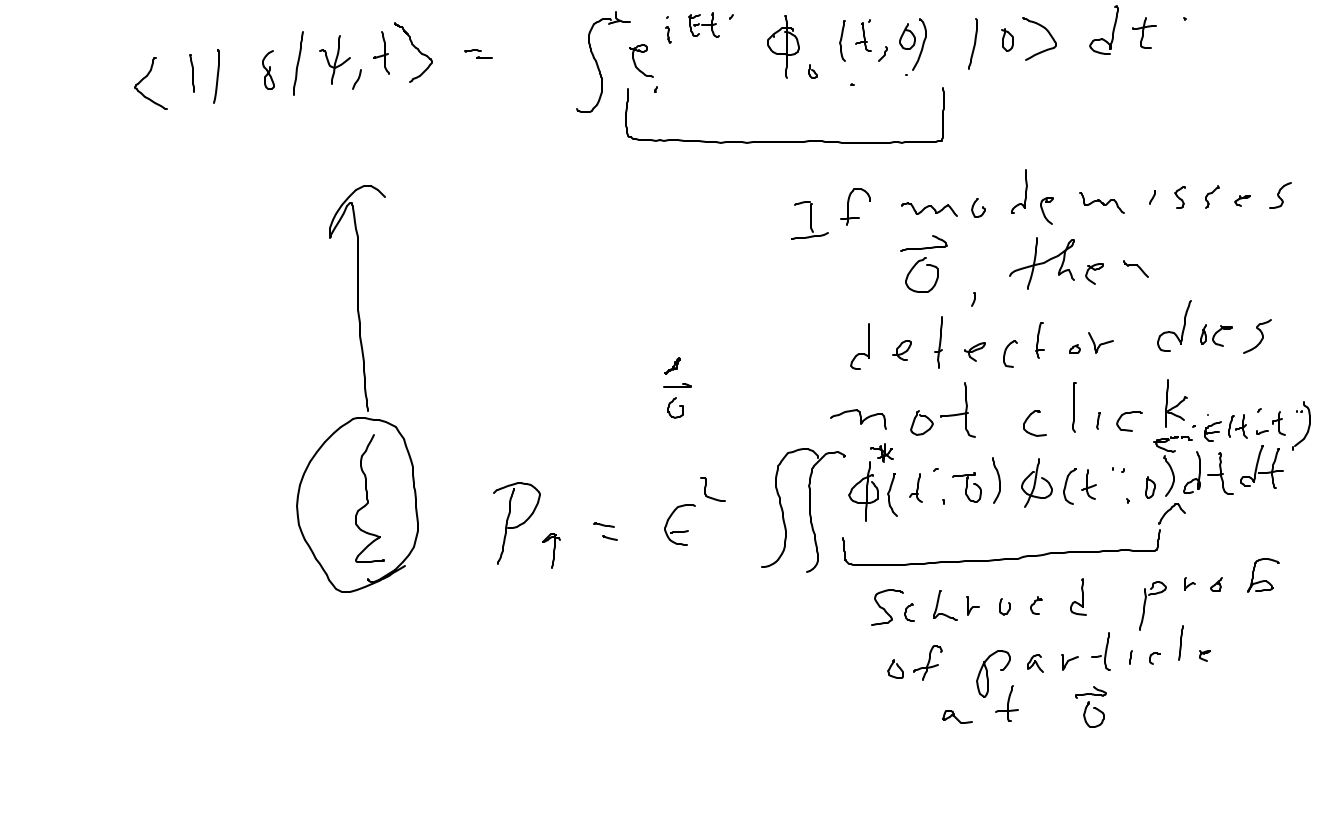 <1| δ|ψ,t> = ∫ e^{iEt'} ϕ₀(t',0) |0> dt'
If mode misses
0⃗, then
detector does
not click
0⃗
P↑ = ϵ² ∬ ϕ*(t',0⃗) ϕ(t'',0) e^{-iE(t'-t'')} dt dt
Schroed prob
of particle
at 0⃗